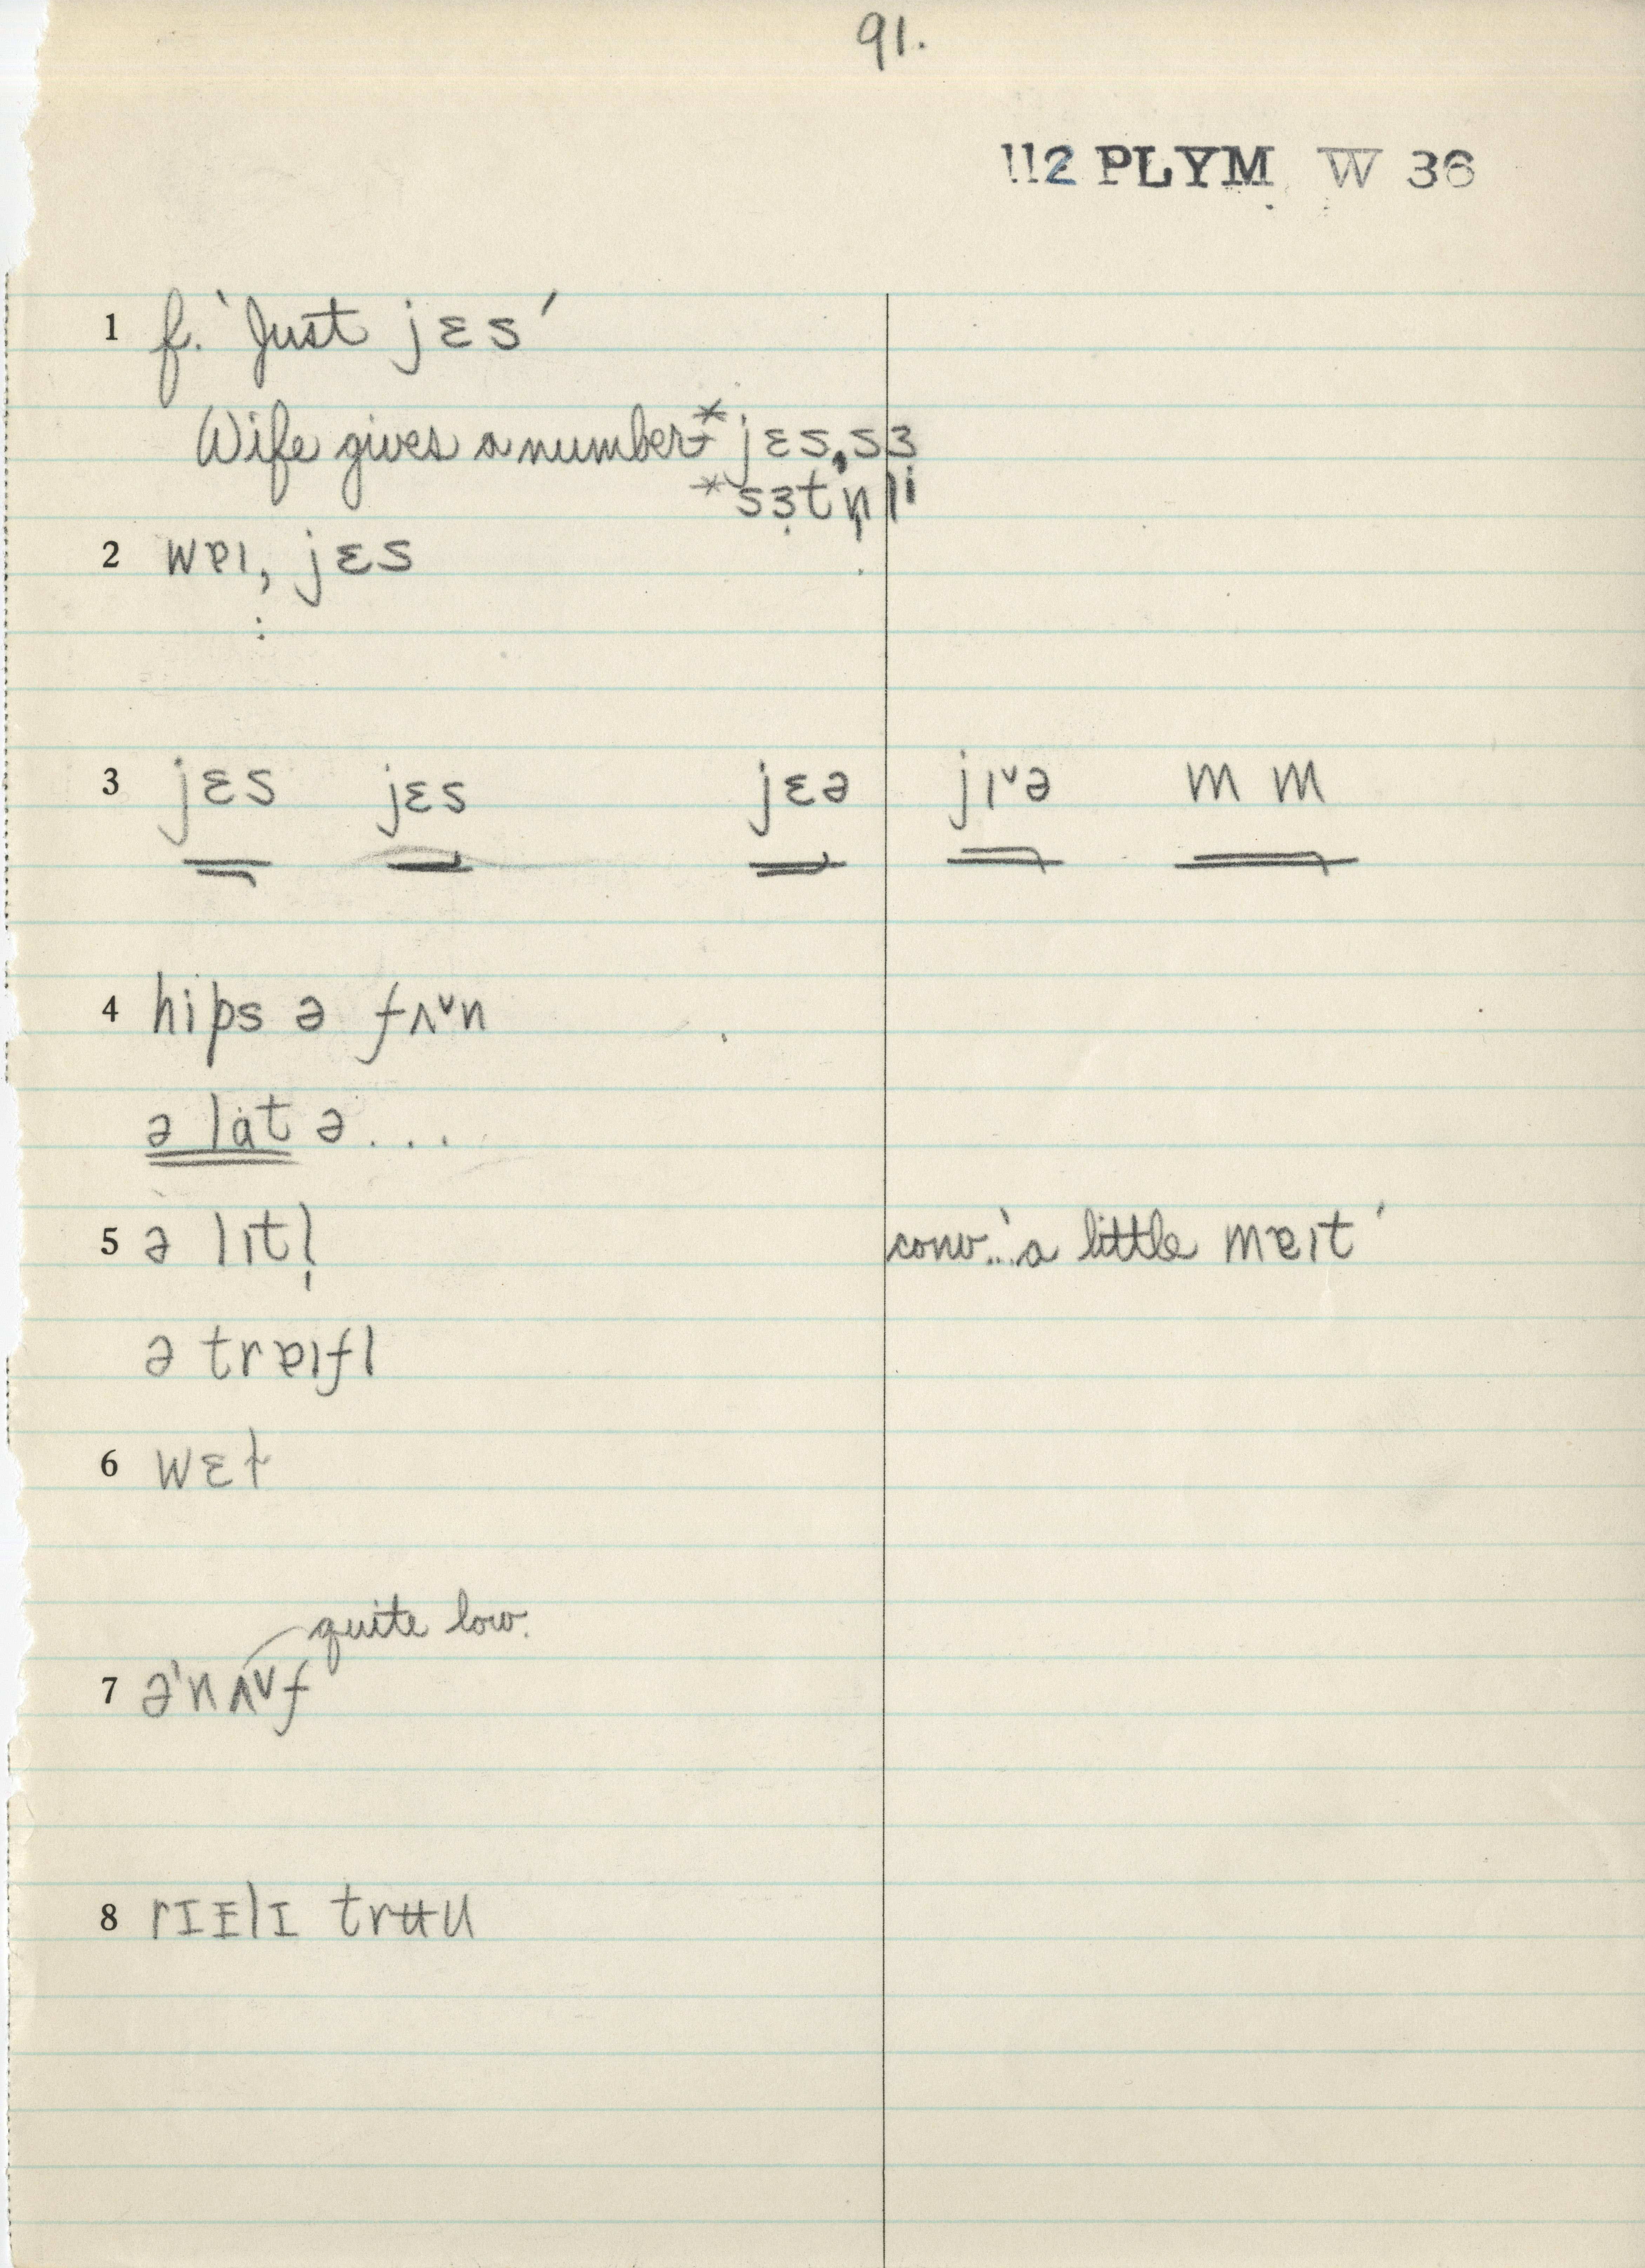 91.
112 PLYM W 36
1 f. 'Just jɛs'
Wife gives a number* jɛs, sɜ
*sɜtn̩li
2 wɐɪ, jɛs
:
3 jɛs jɛs jɛə jɪ˅ə m m
4 hips ə fʌ˅n
ə lȧt ə...
5 ə lɪtl̩ conv...'a little mɐɪt'
ə trɐɪfl
6 wɛɫ
quite low.
7 ə'nʌ˅f
8 rɪᵻlɪ trʉu